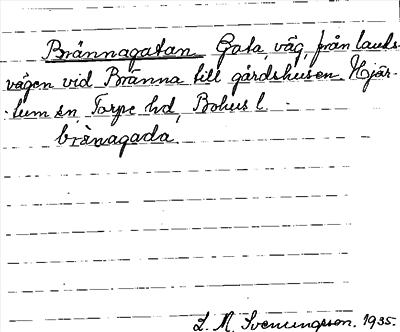 Brännagatan Gata, väg, från lands-
vägen vid Bränna till gårdshusen Hjär-
tum sn, Torpe hd, Bohus l.
brä̀nagada.
L. M. Svenungsson. 1935.